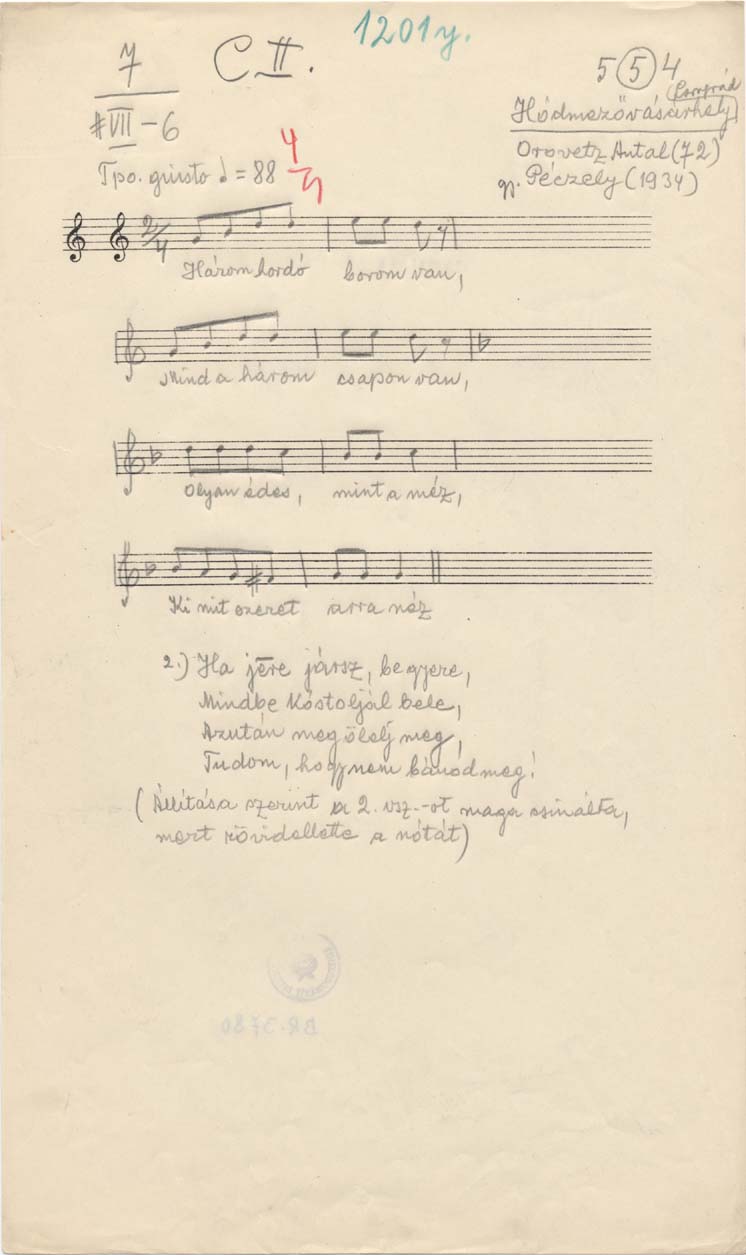 1201y.
7
C II.
5 5 4
#VII – 6
Hódmezővásárhely
Orovetz Antal (72)
gy. Péczely (1934)
Tpo. giusto ♩ = 88
4
2/4
Három hordó borom van,
Mind a három csapon van,
Olyan édes, mint a méz,
Ki mit szeret arra néz
2.) Ha jēre jársz, be gyere,
Mindbe kóstoljál bele,
Azután meg ölelj meg,
Tudom, hogy nem bánod meg!
(Állítása szerint a 2. vsz.-ot maga csinálta,
mert rövidellette a nótát)